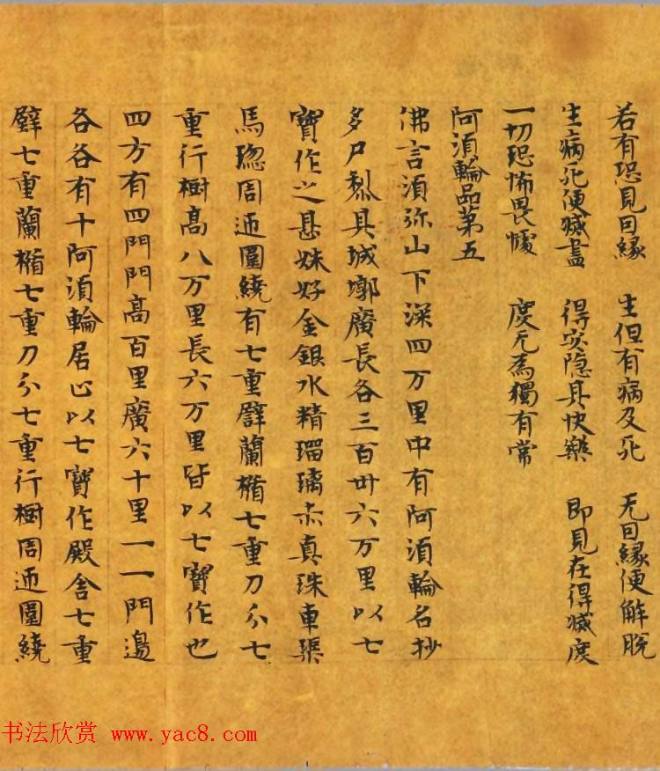 若有恐見因緣 生但有病及死 无因緣便解脫
生病死便滅盡 得安隱具快樂 即見在得滅度
一切恐怖畏懅 度无為獨有常
阿須輪品第五
佛言須弥山下深四万里中有阿須輪名抄
多尸梨其城墎廣長各三百卅六万里以七
寶作之甚姝好金銀水精瑠璃赤真珠車璖
馬瑙周迊圍繞有七重壁蘭楯七重刀分七
重行樹高八万里長六万里皆以七寶作也
四方有四門門高百里廣六十里一一門邊
各各有十阿須輪居止以七寶作殿舍七重
壁七重蘭楯七重刀分七重行樹周迊圍繞
书法欣赏 www.yac8.com